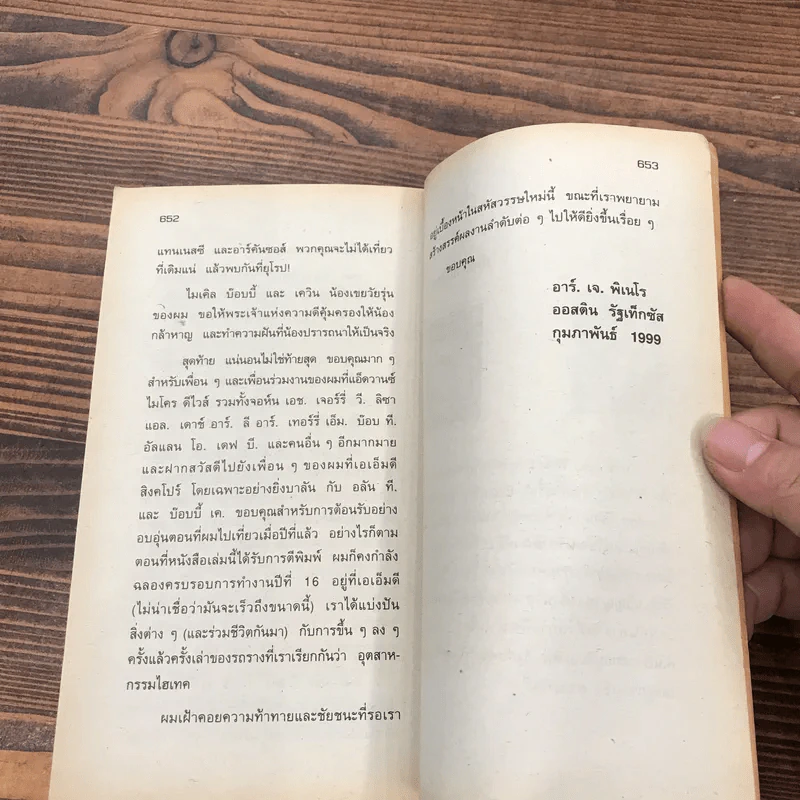 652
แทนเนสซี และอาร์คันซอส์ พวกคุณจะไม่ได้เที่ยว
ที่เดิมแน่ แล้วพบกันที่ยุโรป!
ไมเคิล บ๊อบบี้ และ เควิน น้องเขยวัยรุ่น
ของผม ขอให้พระเจ้าแห่งความดีคุ้มครองให้น้อง
กล้าหาญ และทำความฝันที่น้องปรารถนาให้เป็นจริง
สุดท้าย แน่นอนไม่ใช่ท้ายสุด ขอบคุณมาก ๆ
สำหรับเพื่อน ๆ และเพื่อนร่วมงานของผมที่แอ็ดวานซ์
ไมโคร ดีไวส์ รวมทั้งจอห์น เอช. เจอร์รี่ วี. ลิซา
แอล. เดาซ์ อาร์. ลี อาร์. เทอร์รี่ เอ็ม. บ๊อบ ที.
อัลแลน โอ. เตฟ บี. และคนอื่น ๆ อีกมากมาย
และฝากสวัสดีไปยังเพื่อน ๆ ของผมที่เอเอ็มดี
สิงคโปร์ โดยเฉพาะอย่างยิ่งบาลัน กับ อลัน ที.
และ บ๊อบบี้ เค. ขอบคุณสำหรับการต้อนรับอย่าง
อบอุ่นตอนที่ผมไปเที่ยวเมื่อปีที่แล้ว อย่างไรก็ตาม
ตอนที่หนังสือเล่มนี้ได้รับการตีพิมพ์ ผมก็คงกำลัง
ฉลองครบรอบการทำงานปีที่ 16 อยู่ที่เอเอ็มดี
(ไม่น่าเชื่อว่ามันจะเร็วถึงขนาดนี้) เราได้แบ่งปัน
สิ่งต่าง ๆ (และร่วมชีวิตกันมา) กับการขึ้น ๆ ลง ๆ
ครั้งแล้วครั้งเล่าของรถรางที่เราเรียกกันว่า อุตสาห-
กรรมไฮเทค
ผมเฝ้าคอยความท้าทายและชัยชนะที่รอเรา
653
อยู่เบื้องหน้าในสหัสวรรษใหม่นี้ ขณะที่เราพยายาม
สร้างสรรค์ผลงานลำดับต่อ ๆ ไปให้ดียิ่งขึ้นเรื่อย ๆ
ขอบคุณ
อาร์. เจ. พิเนโร
ออสติน รัฐเท็กซัส
กุมภาพันธ์ 1999